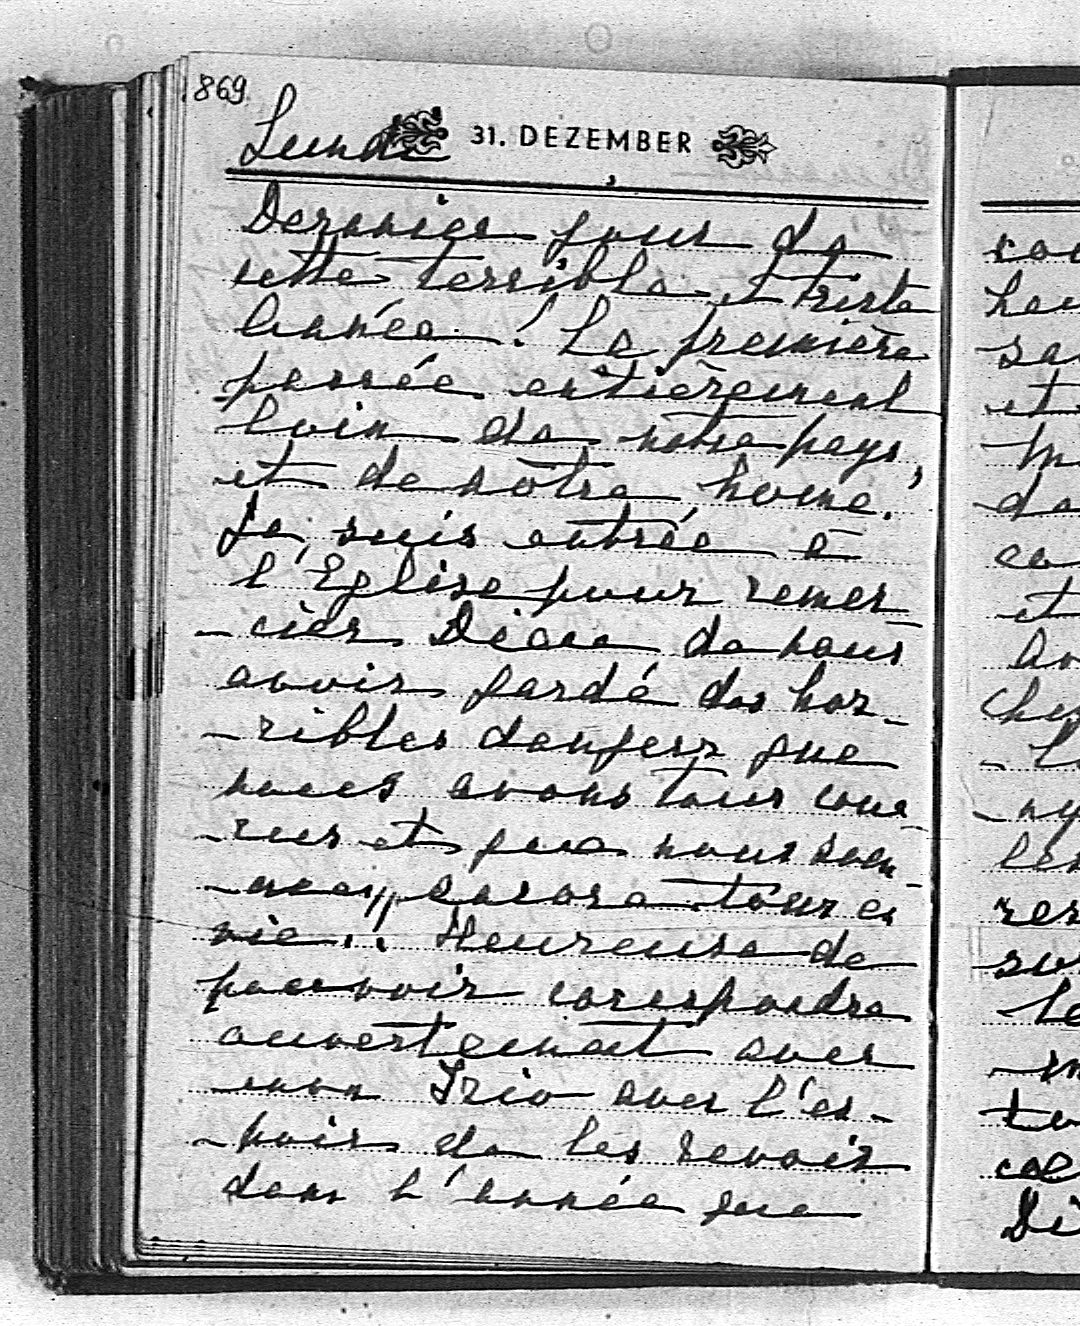 869
Lundi
31. DEZEMBER
Dernier jour de
cette terrible et triste
année! La première
passée entièrement
loin de notre pays,
et de nôtre home!
Je suis entrée à
l'Eglise pour remer
-cier Dieu de nous
avoir gardé des hor-
-ribles dangers que
nous avons tous cou-
-rus et que nous som-
-mes encore tous en
vie!! Heureuse de
pouvoir correspondre
ouvertement avec
mon Trio avec l'es-
-poir de les revoir
dans l'année que